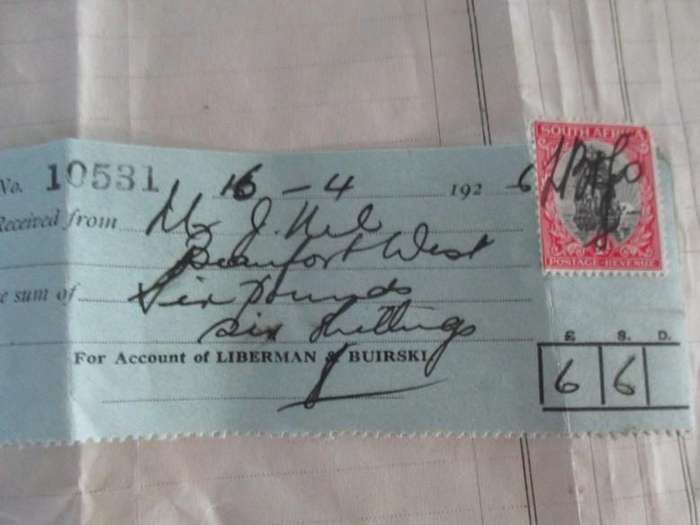 No. 10531 16 - 4 1926
Received from Mr J. Nel
Beaufort West
e sum of Six Pounds
six shillings
For Account of LIBERMAN & BUIRSKI
£ S. D.
6 6
SOUTH AFRICA
POSTAGE-REVENUE